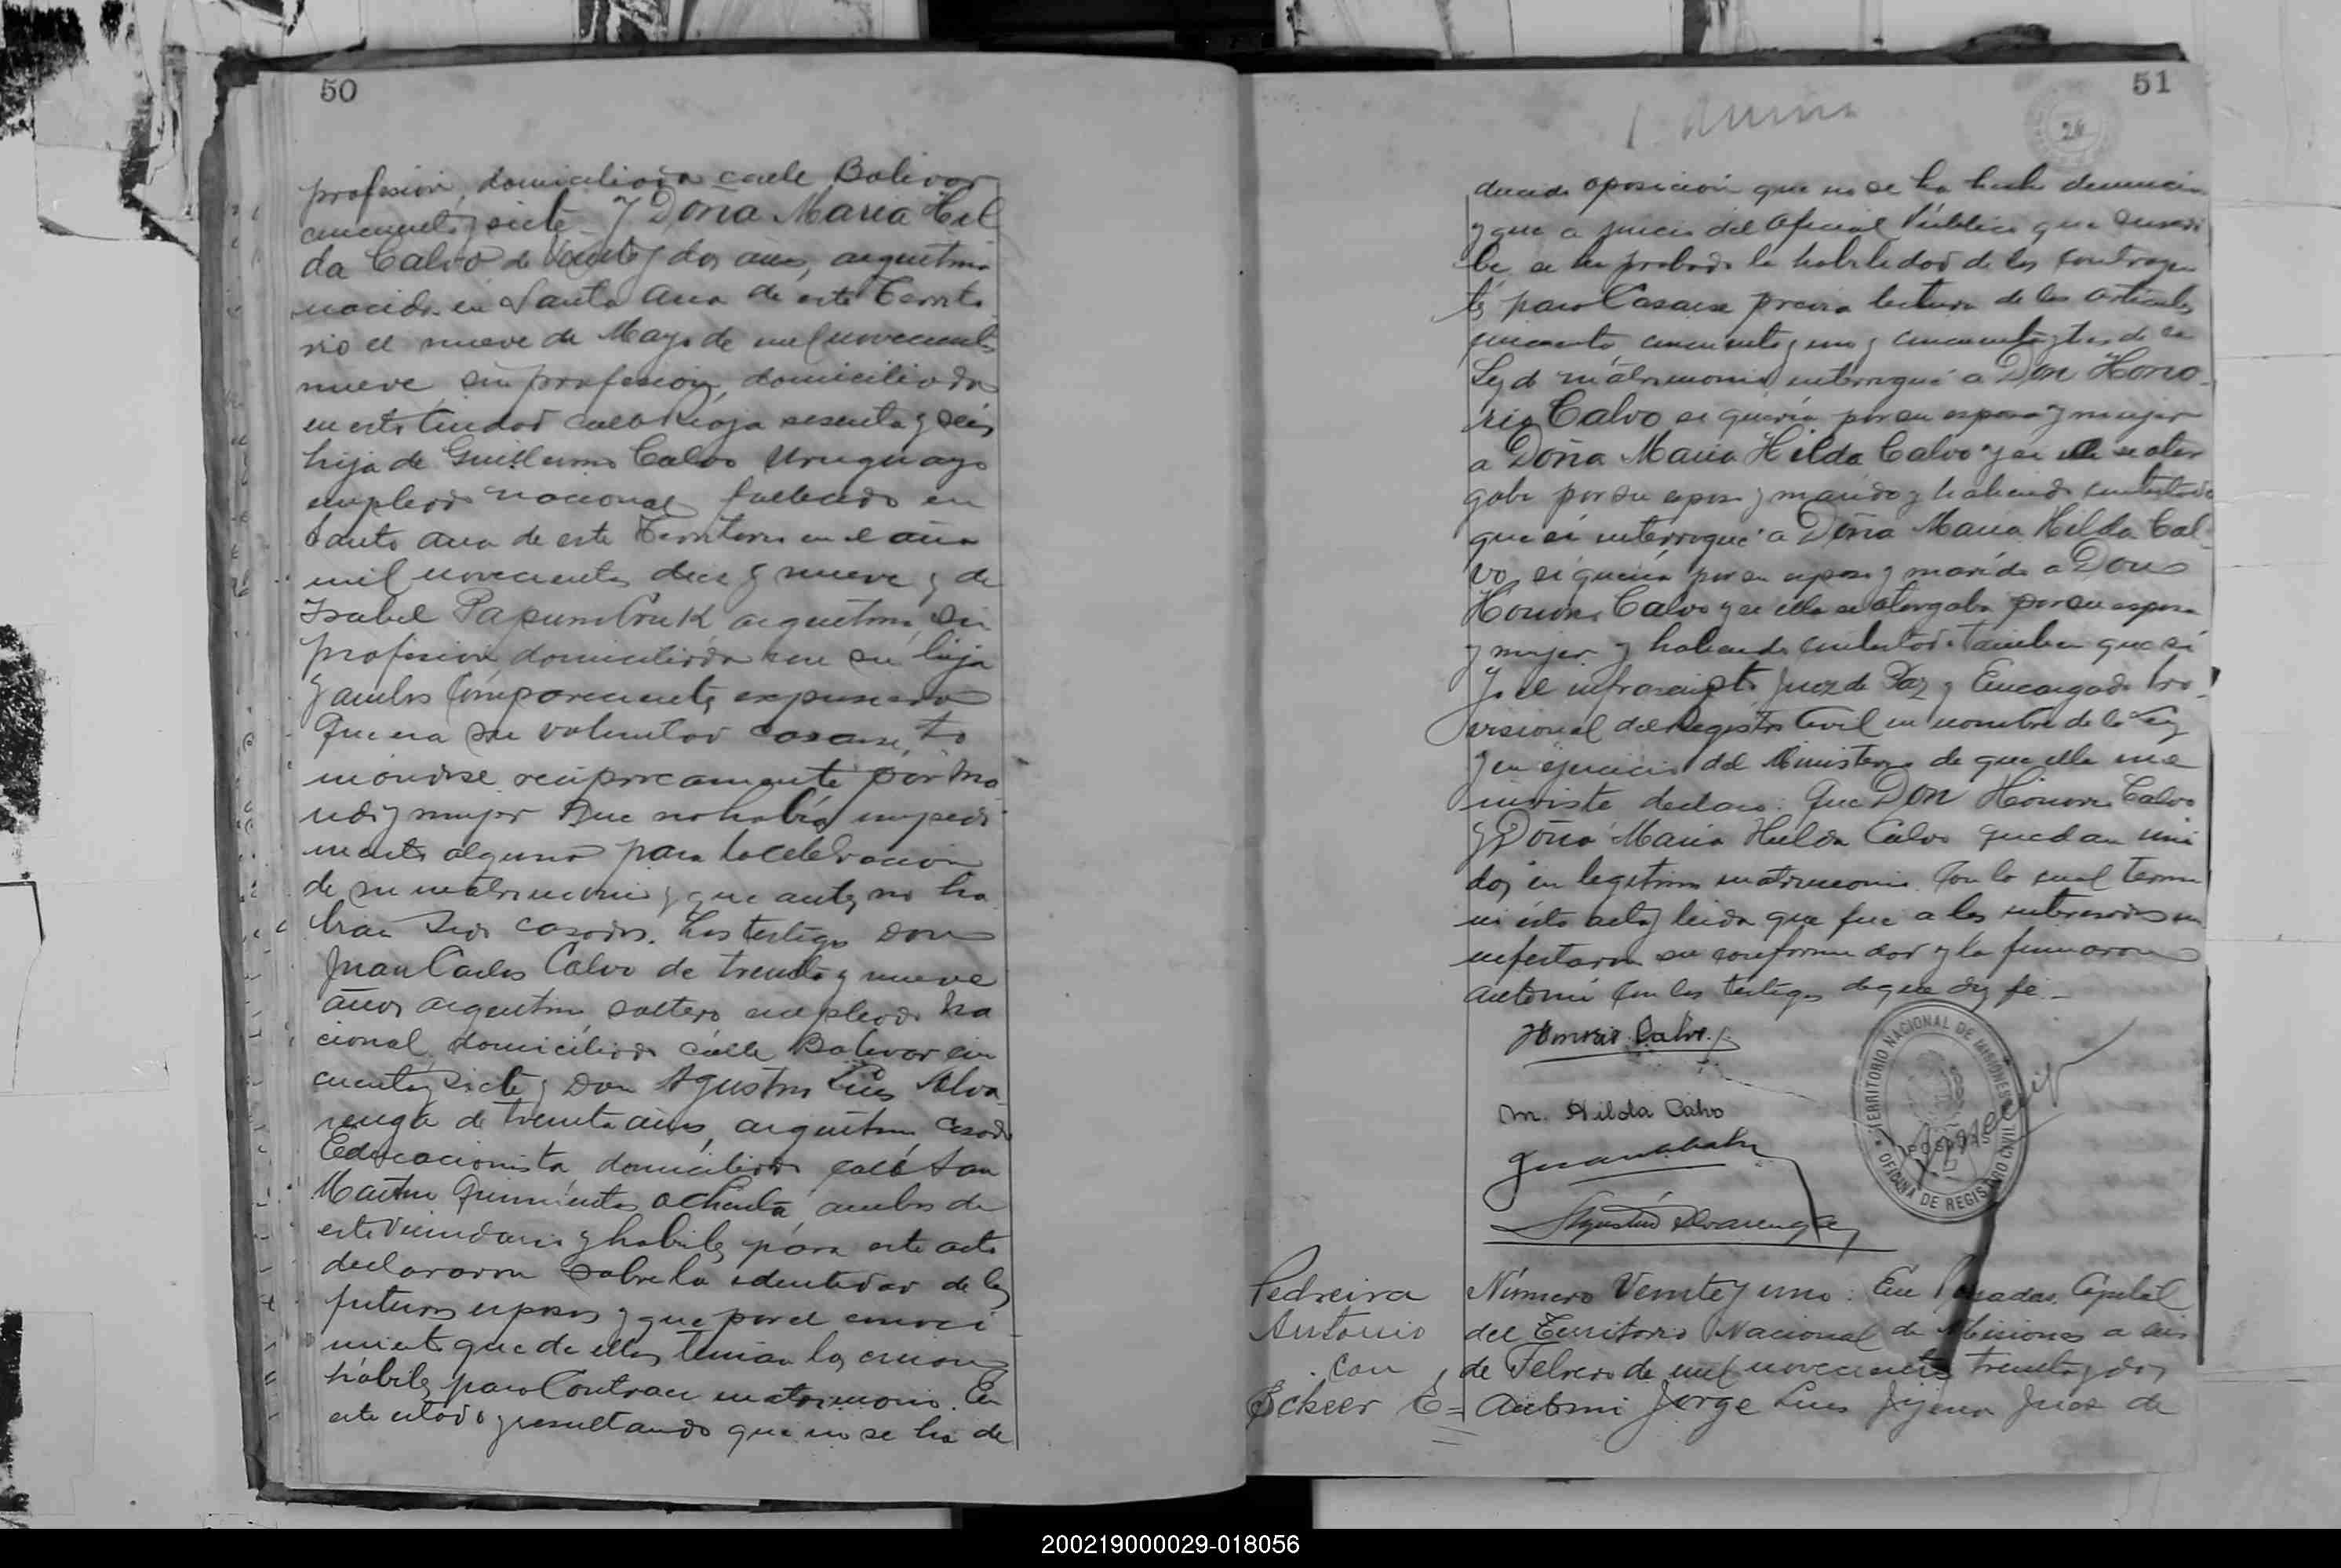 50
profesión, domiciliada calle Bolivar
cincuenta y siete y Doña Maria Hil
da Calvo de Veinte y dos años, argentina
nacida en Santa Ana de este Territo
rio el nueve de Mayo de mil novecientos
nueve, sin profesión, domiciliada
en esta Ciudad calle Rioja sesenta y seis
hija de Guillermo Calvo Uruguayo
empleado nacional fallecido en
Santa Ana de este Territorio en el año
mil novecientos diez y nueve y de
Isabel argentina, sin
profesión domiciliada con su hija
y ambos comparecientes expusieron
Que era su voluntad casarse, to
mandose reciprocamente por ma
rido y mujer Que no había impedi
mento alguno para la celebracion
de su matrimonio y que antes no ha
bian sido casados. Los testigos Don
Juan Carlos Calvo de treinta y nueve
años argentino, soltero empleado na
cional domiciliado calle Bolivar cin
cuenta y siete y Don Agustin Luis Alva
renga de treinta años, argentino, casado
Educacionista domiciliado calle San
Martin Quinientos ochenta, ambos de
este vecindario y habiles para este acto
declararon sobre la identidad de los
futuros esposos y que por el conoci
miento que de ellos tenian los creian
hábiles para Contraer matrimonio. En
este estado y resultando que no se ha de
51
24
ducido oposición que no se ha hecho denuncia
y que a juicio del Oficial Público que suscri
be se ha probado la habilidad de los contrayen
tes para Casarse previa lectura de los articulos
cincuenta cincuenta y uno y cincuenta y tres de la
Ley de matrimonio interrogué a Don Hono
rio Calvo si queria por su esposa y mujer
a Doña Maria Hilda Calvo y si a ella se otor
gaba por su esposo y marido y habiendo contestado
que si interrogué a Doña Maria Hilda Cal
vo, si queria por su esposo y marido a Don
Honorio Calvo y se ella se otorgaba por su esposa
y mujer y habiendo contestado tambien que si
Yo el infrascripto Juez de Paz y Encargado Pro
visional del Registro Civil en nombre de la Ley
y en ejercicio del Ministerio de que ella me
inviste declaro: Que Don Honorio Calvo
y Doña Maria Hilda Calvo quedan uni
dos en legitimo matrimonio. Con lo cual termi
nó este acta y leida que fue a los interesados ma
nifestaron su conformidad y la firmaron
ante mi con los testigos de que doy fe.
Honorio Calvo
M. Hilda Calvo
Agustin Alvarenga
TERRITORIO NACIONAL DE MISIONES
OFICINA DE REGISTRO CIVIL
POSADAS
Pedreira
Antonio
con
Scheer E=
Número Veinte y uno: En Posadas, Capital
del Territorio Nacional de Misiones a seis
de Febrero de mil novecientos treinta y dos,
Ante mi Jorge Luis Juez de
200219000029-018056